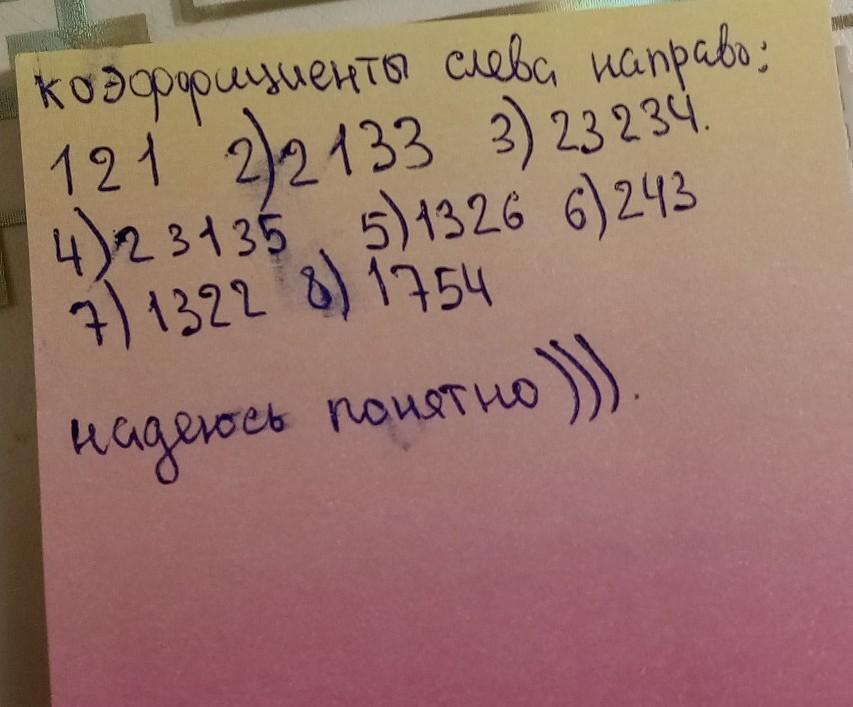 коэффициенты слева направо:
121 2)2133 3)23234.
4)23135 5)1326 6)243
7)1322 8)1754
надеюсь понятно))).